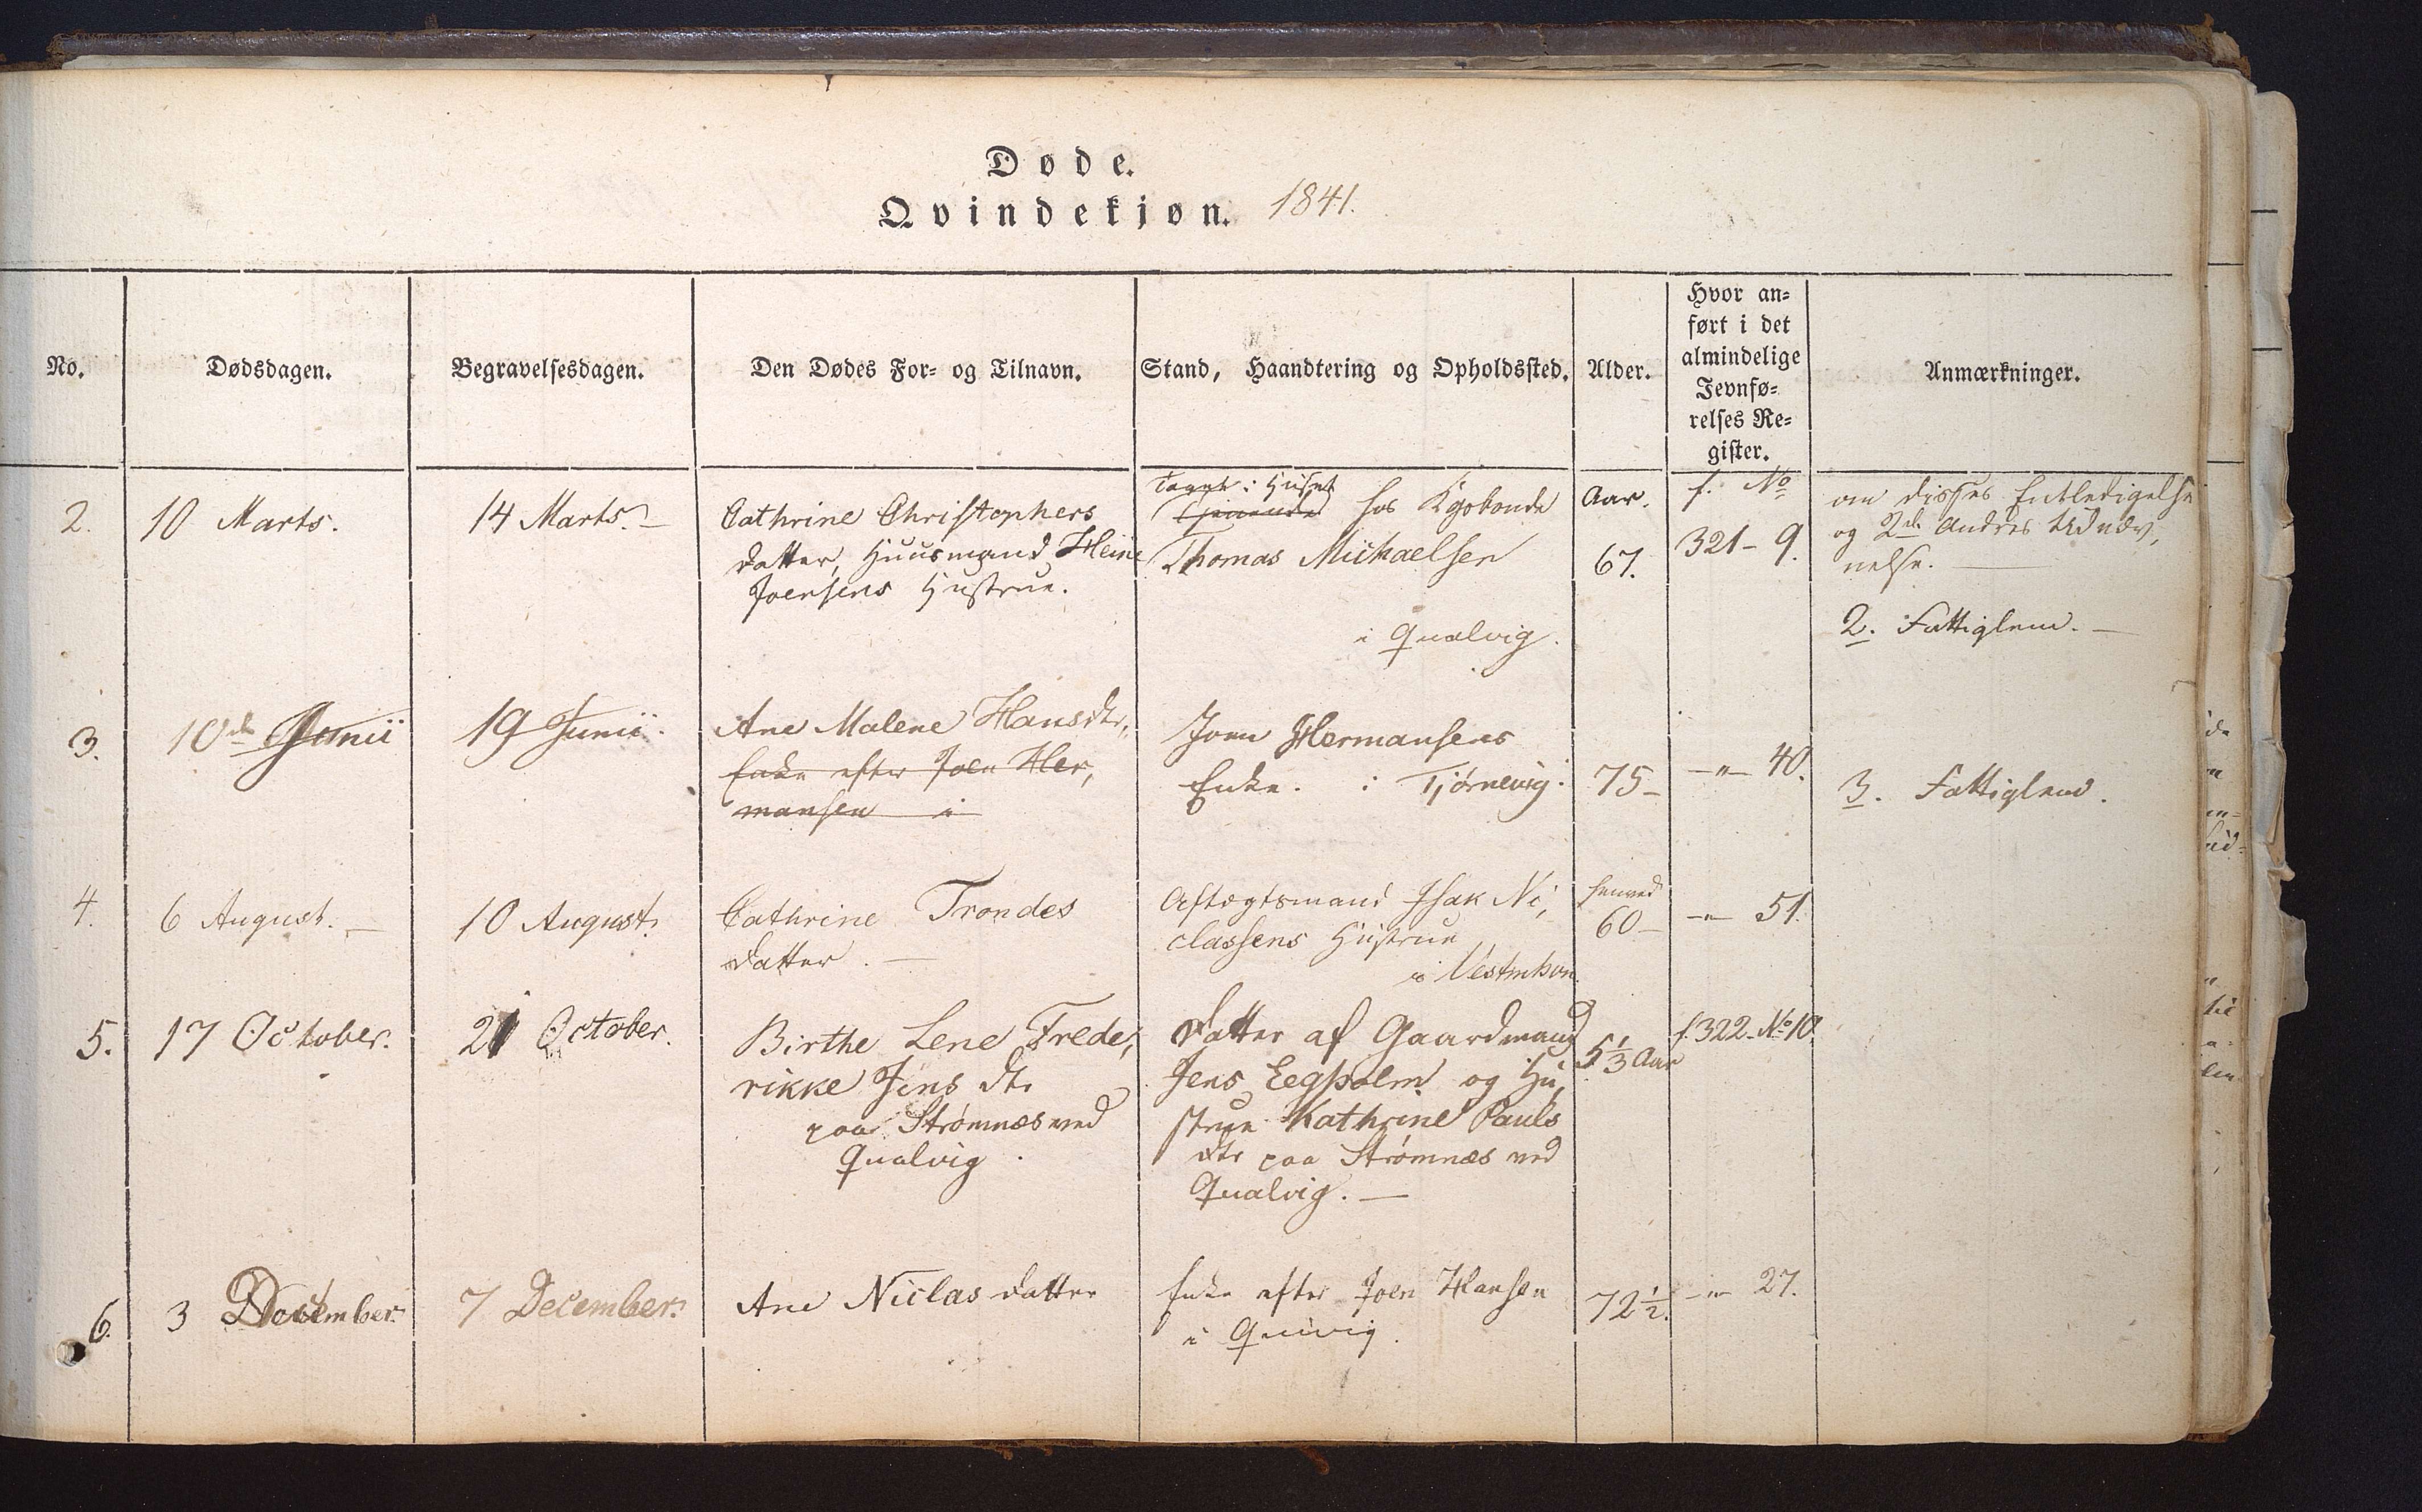 Døde.
Qvindekjøn. 1841.
No.
Dødsdagen.
Begravelsesdagen.
Den Dødes For- og Tilnavn.
Stand, Haandtering og Opholdssted.
Alder.
Hvor an-
ført i det
almindelige
Jevnfø-
relses Re-
gister.
Anmærkninger.
2.
10 Marts.
14 Marts. –
Cathrine Christophers
datter, Huusmand Heine
Joensens Hustrue.
Taget i Huset
hos Kgsbonde
Thomas Michaelsen
i Qualvig.
Aar.
67.
f. No
321 – 9.
om disses Entledigelse
og 2de Andres Udnæv,
nelse. –
2. Fattiglem. –
3.
10de Junii
19 Junii.
Ane Malene Hansdtr,
Enke efter Joen Her,
mansen i
Joen Hermansens
Enke. i Tjørnevig.
75 –
– " – 40.
3. Fattiglem.
4.
6 August. –
10 August.
Cathrine Trondes
datter. –
Aftægtsmand Isak Ni,
classens Hustrue
i Vestmhvn
henved
60 –
– " – 51.
5.
17 October.
21 October.
Birthe Lene Frede,
rikke Jens dtr
paa Strømnæs ved
Qualvig.
Datter af Gaardmand
Jens Eegholm og Hu,
strue Kathrine Pauls
dtr paa Strømnæs ved
Qualvig. –
5 1/3 Aar
f. 322. No 10.
6.
3 December.
7 December.
Ane Niclas datter
Enke efter Joen Hansen
i Quivig.
72 1/2.
– " – 27.